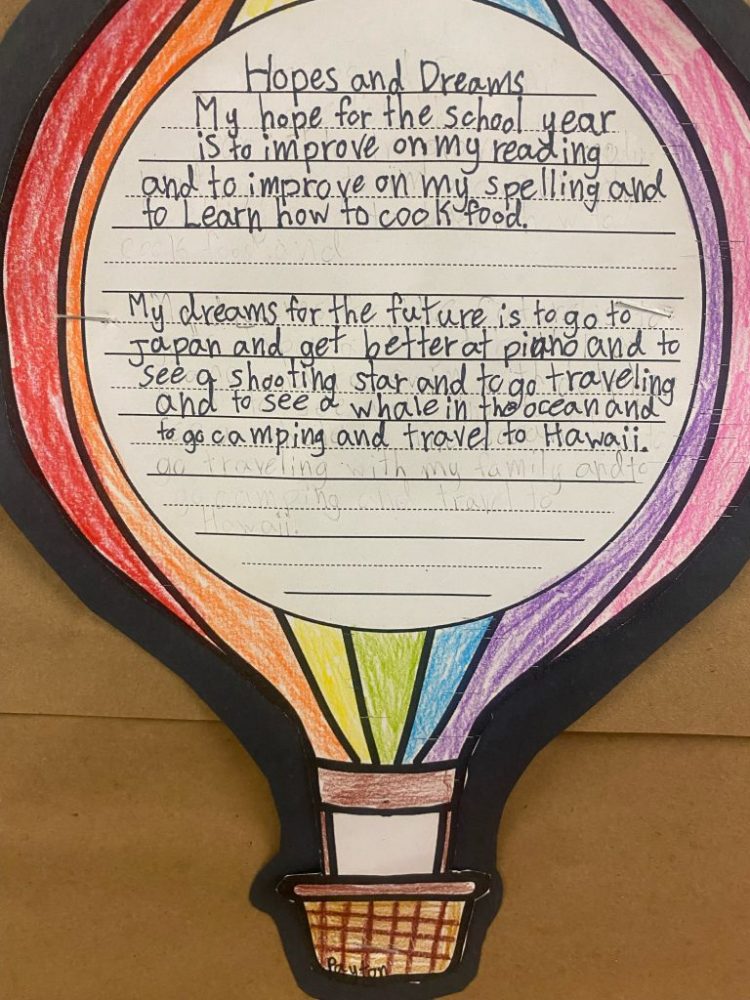 Hopes and Dreams
My hope for the school year
is to improve on my reading
and to improve on my spelling and
to Learn how to cook food.
cook food and
My dreams for the future is to go to
Japan and get better at piano and to
see a shooting star and to go traveling
and to see a whale in the ocean and
to go camping and travel to Hawaii.
go traveling with my family and to
go camping and travel to
Hawaii.
Payton